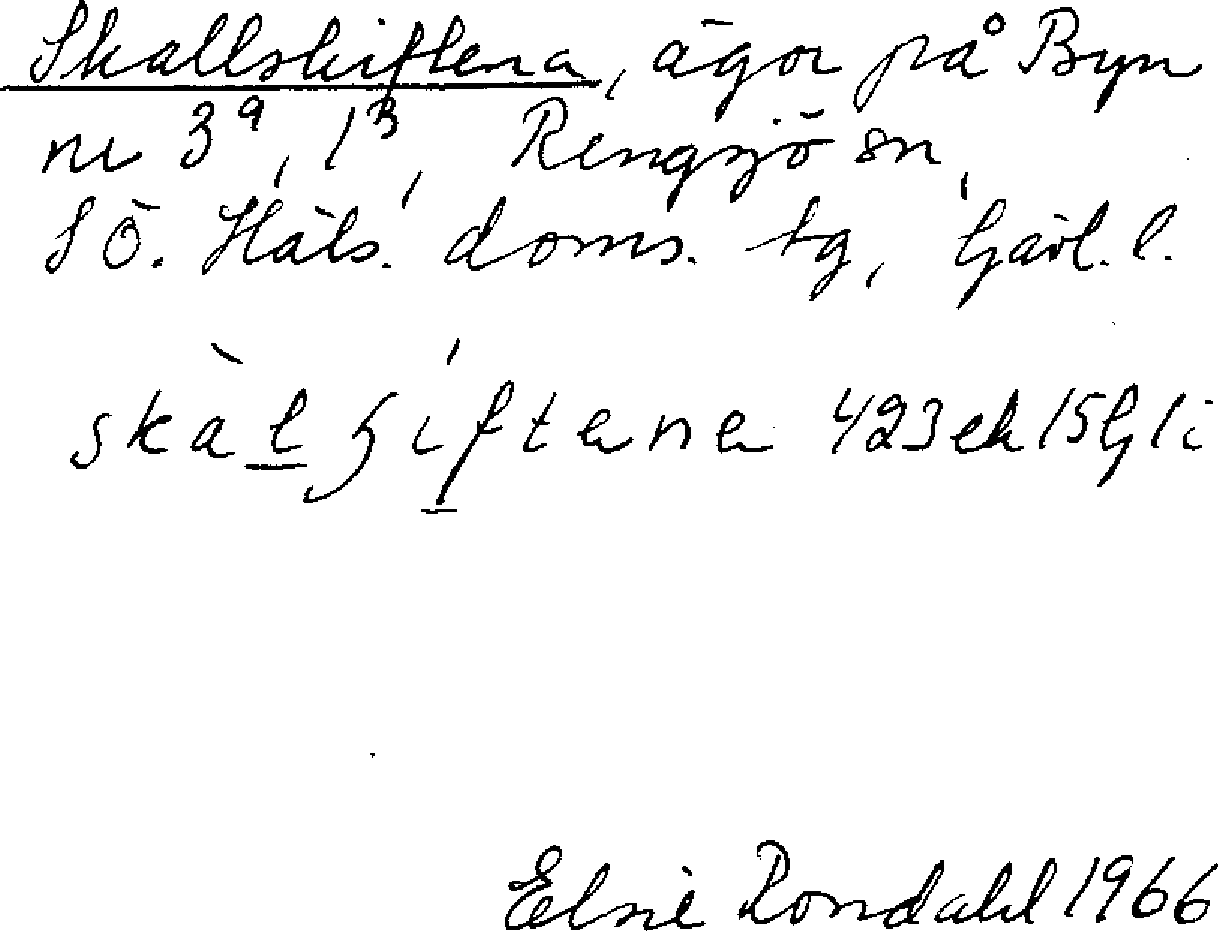 Skallskiftena, ägor på Byn
nr 3⁹, 1³, Rengsjö sn,
SÖ. Häls. doms. tg, Gävl. l.
skàlʂíftena 423 ek 15 G li
Elsie Rondahl 1966